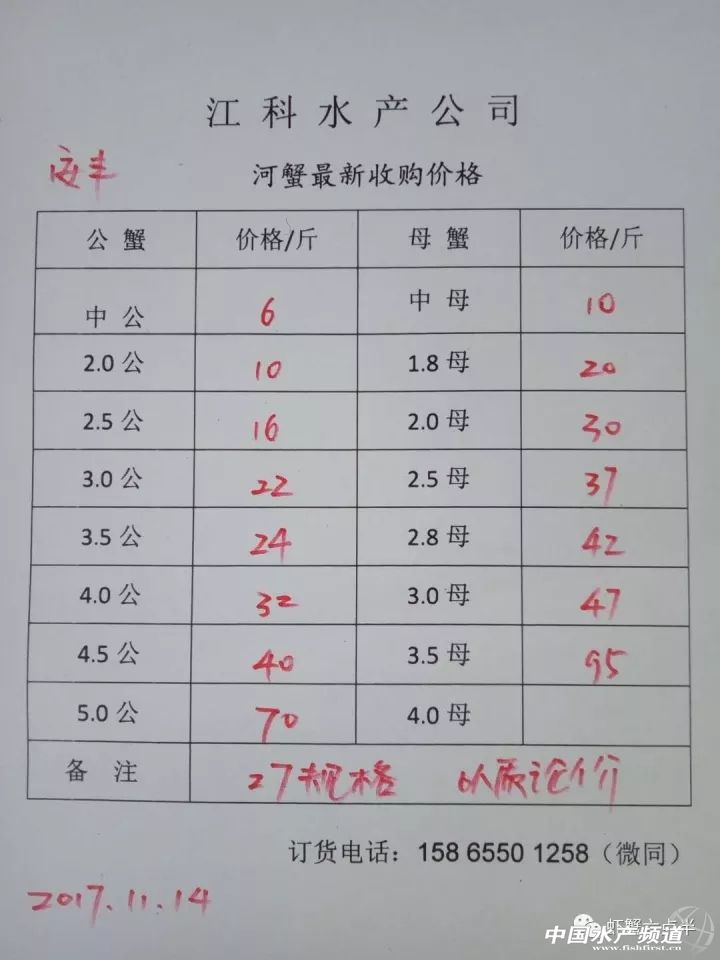 江科水产公司
安丰
河蟹最新收购价格
公蟹 价格/斤 母蟹 价格/斤
中公 6 中母 10
2.0公 10 1.8母 20
2.5公 16 2.0母 30
3.0公 22 2.5母 37
3.5公 24 2.8母 42
4.0公 32 3.0母 47
4.5公 40 3.5母 95
5.0公 70 4.0母
备注 27规格 以质论价
订货电话：158 6550 1258（微同）
2017.11.14
虾蟹六点半
中国水产频道
www.fishfirst.cn